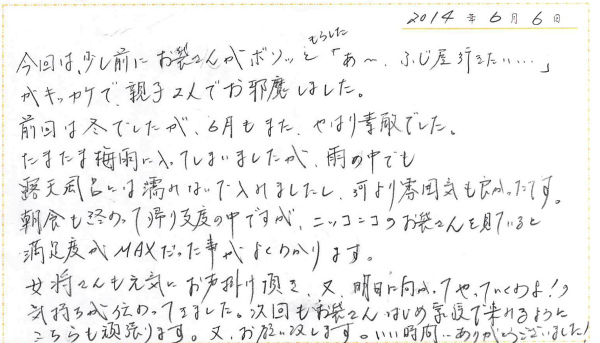 2014年6月6日
今回は、少し前にお袋さんがボソッともらした「あ〜、ふじ屋行きたい…」
がキッカケで、親子2人でお邪魔しました。
前回は冬でしたが、6月もまた、やはり素敵でした。
たまたま梅雨に入ってしまいましたが、雨の中でも
露天風呂には濡れないで入れましたし、何より雰囲気も良かったです。
朝食も終わって帰り支度の中ですが、ニッコニコのお袋さんを見ていると
満足度がMAXだった事がよくわかります。
女将さんも元気にお声掛け頂き、又、明日に向かってやっていくのよ!の
気持ちが伝わってきました。次回もお袋さんはじめ家族で来れるように
こちらも頑張ります。又、お願い致します。いい時間、ありがとうございました!